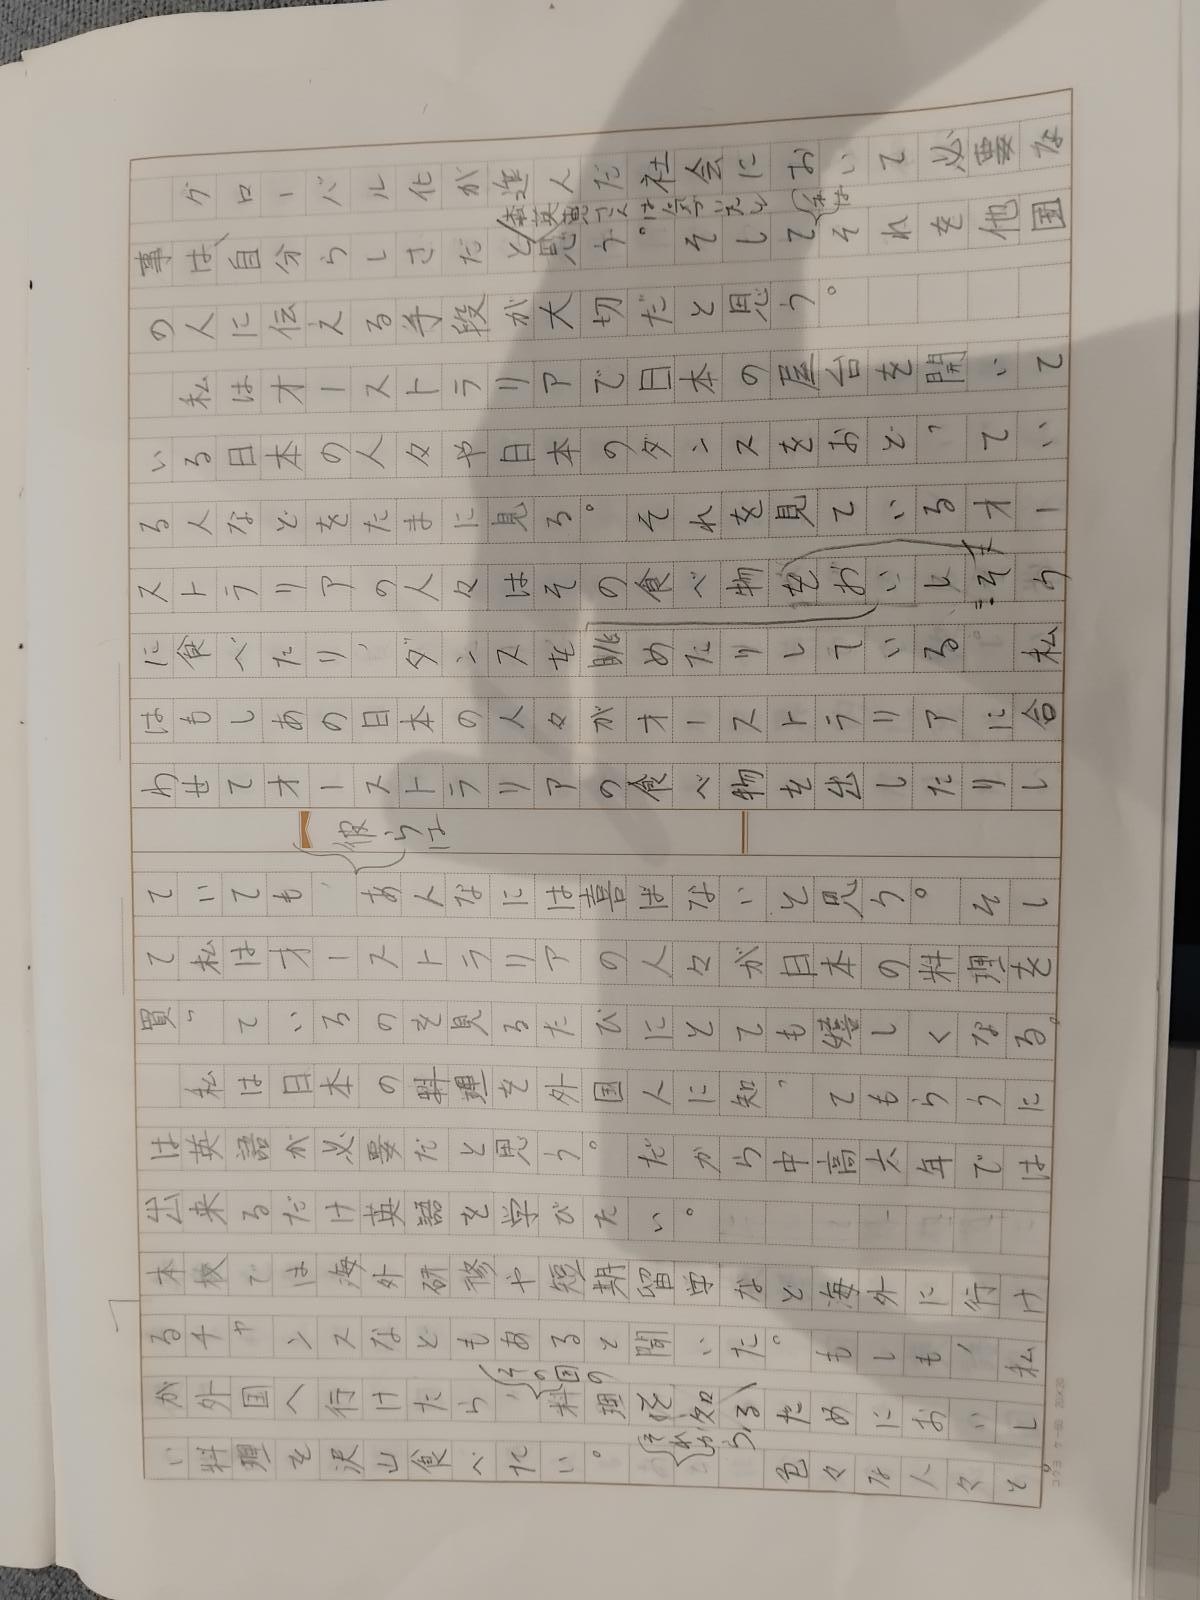 グローバル化が進んだ社会において必要な
事は、自分らしさだと思う。そしてそれを他国
の人に伝える手段が大切だと思う。
私はオーストラリアで日本の屋台を開いて
いる日本の人々や日本のダンスをおどってい
る人などをたまに見る。それを見ているオー
ストラリアの人々はその食べ物をおいしそう
に食べたり、ダンスを眺めたりしている。私
はもしあの日本の人々がオーストラリアに合
わせてオーストラリアの食べ物を出したりし
彼らは
ていても、あんなには喜ばないと思う。そし
て私はオーストラリアの人々が日本の料理を
買っているのを見るたびにとても嬉しくなる。
私は日本の料理を外国人に知ってもらうに
は英語が必要だと思う。だから中高六年では
出来るだけ英語を学びたい。
本校では海外研修や短期留学など海外に行け
るチャンスなどもあると聞いた。もしも、私
その国の
が外国へ行けたら、料理を知るためにおいし
それから
い料理を沢山食べたい。色々な人々と
コクヨ ケ-60 20×20